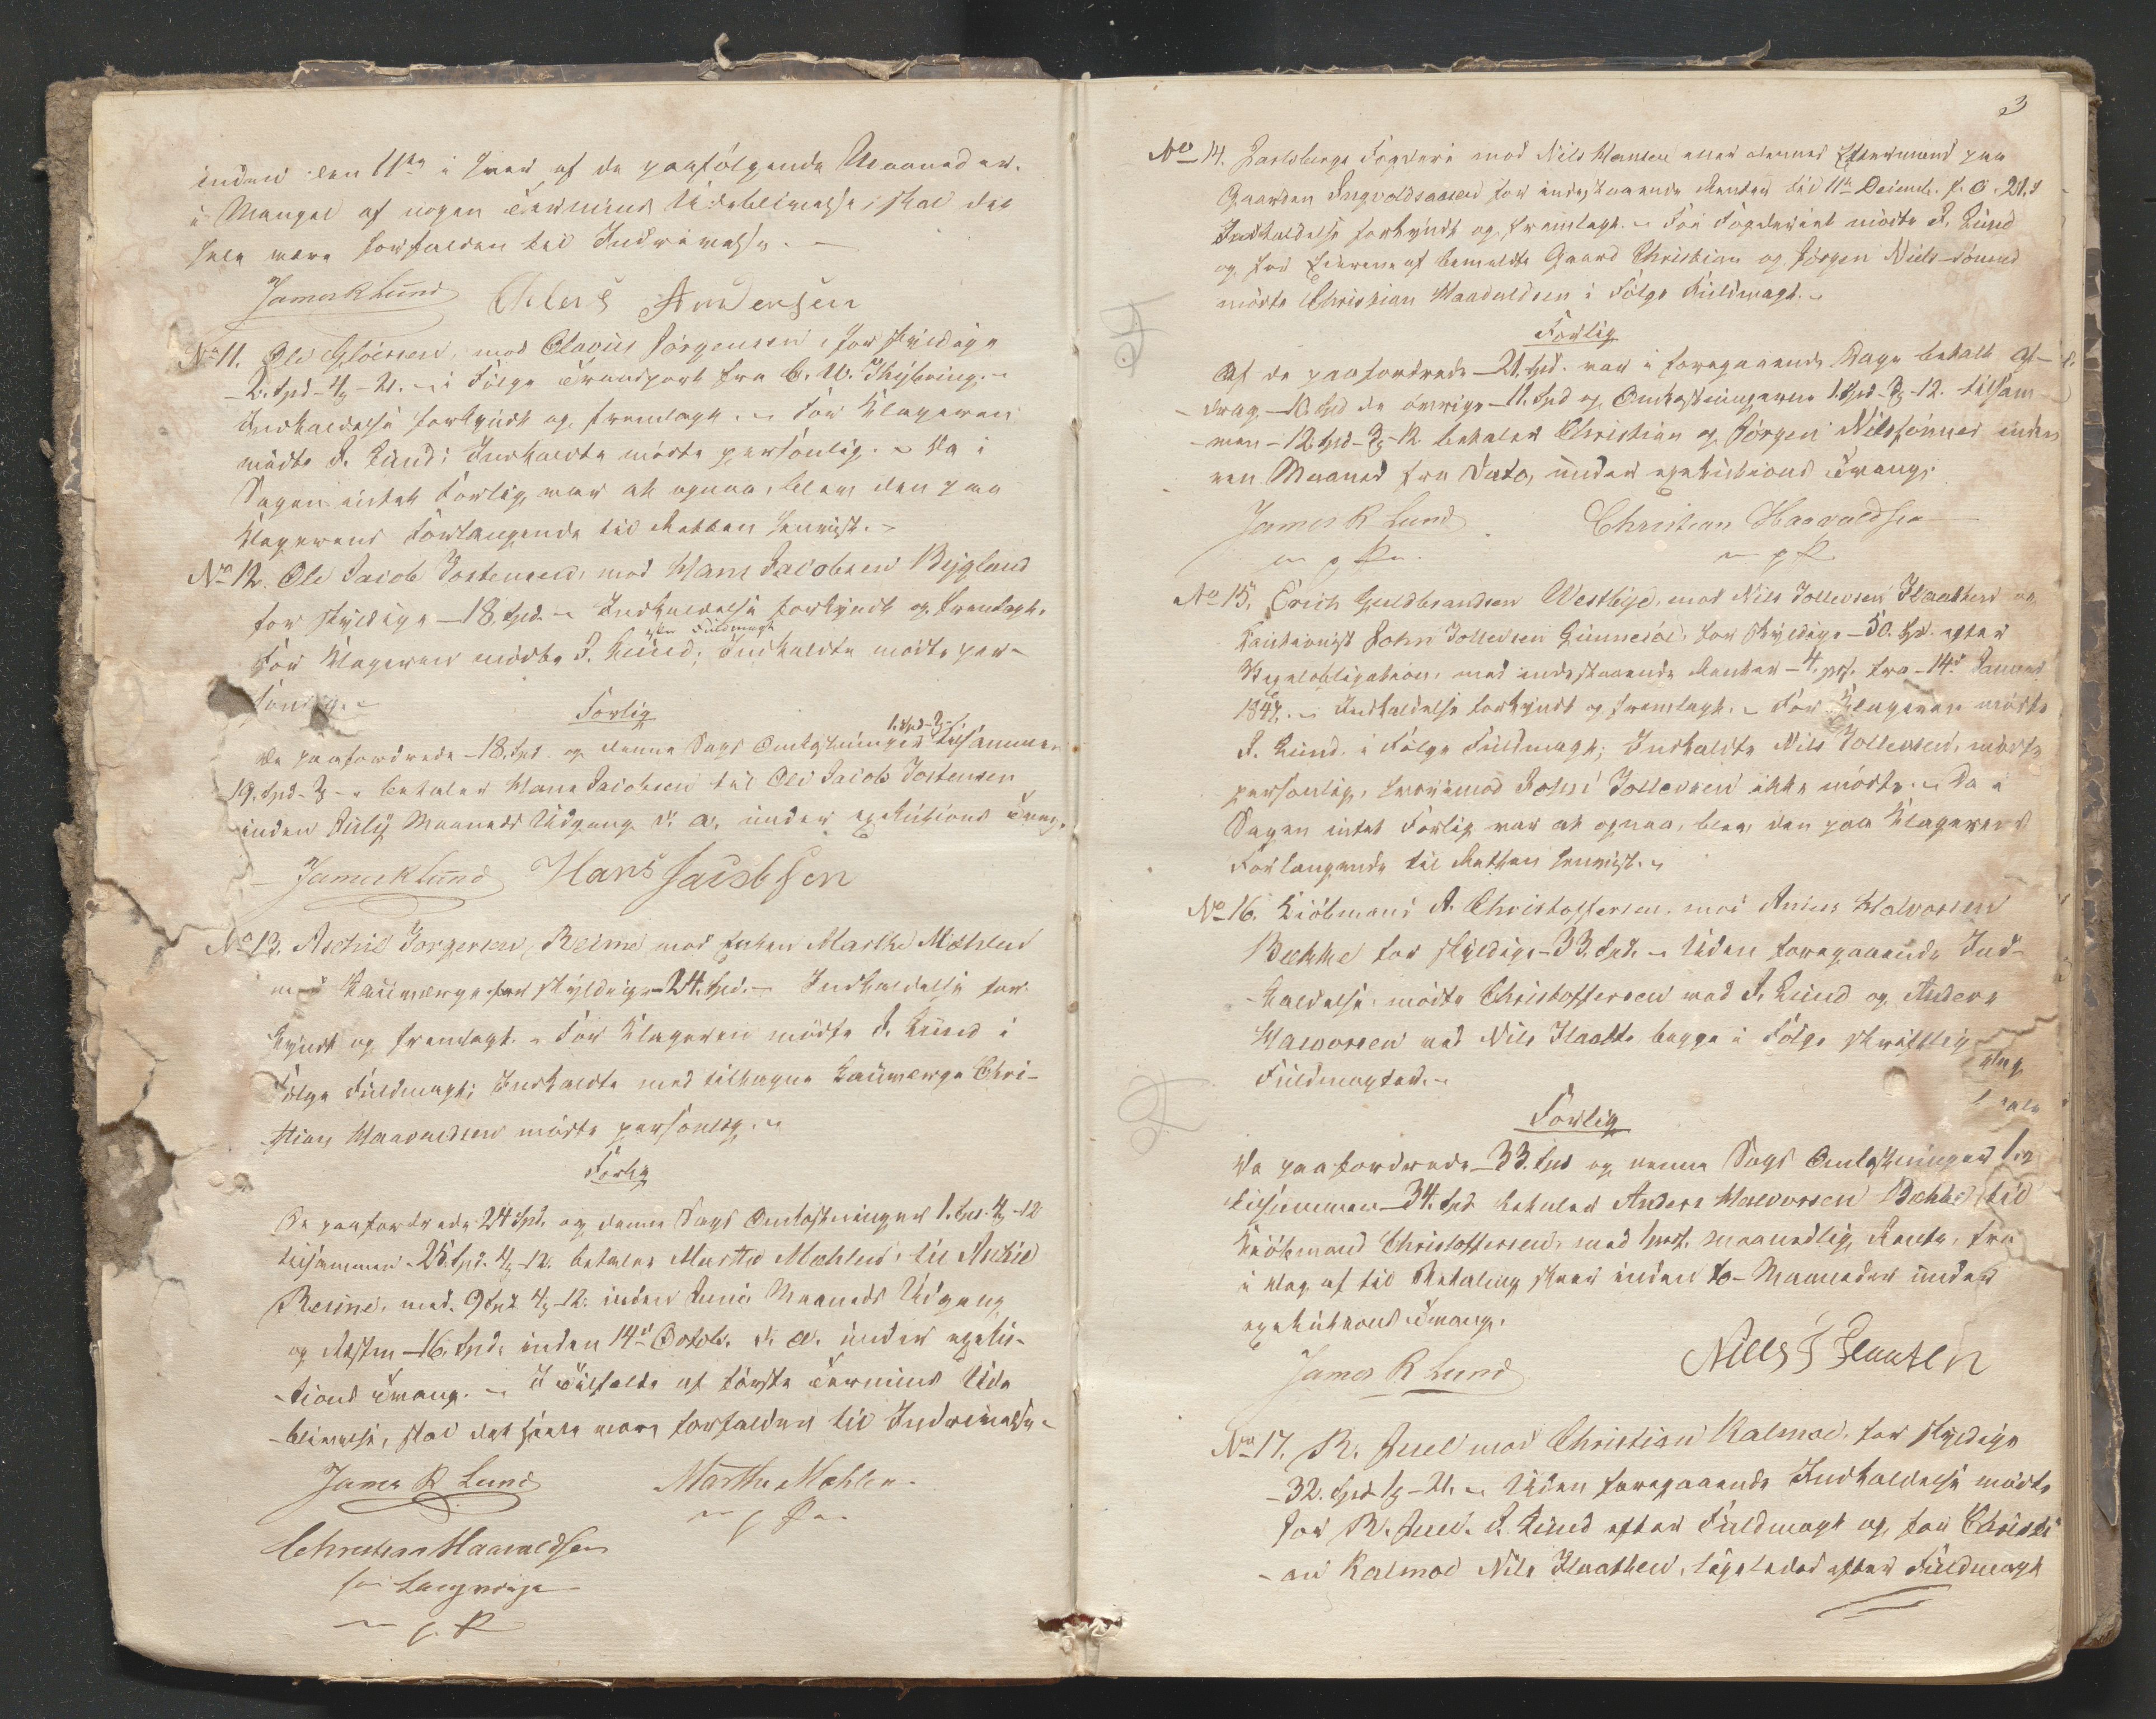 inden den 11te i hver af de paafølgende Maaneder.
i Mangel af nogen Termins Udeblivelse, skal det
hele være forfalden til Inddrivelse.
James R Lund Andersen
No 11. Ole mod Olavus Jörgensen, for skyldige
2 Spd - 4 - 21. i Fölge Transport fra C. W.
Indkaldelse forkyndt og fremlagt. For Klageren
mödte J. Lund; Indkaldte mödte personlig. Da i
Sagen intet Forlig var at opnaa, blev den paa
Klagerens Forlangende til Retten henvist.
No 12. Ole Jacob Jostensen mod Hans Jacobsen Bygland
for skyldige 18 Spd. Indkaldelse forkyndt og fremlagt.
efter Fuldmagt
For Klageren mödte J. Lund; Indkaldte mödte per-
sonlig.
Forlig
1. Spd - 3 -
De paafordrede 18 Spd. og denne Sags Omkostninger tilsammen
19. Spd - 3 - betaler Hans Jacobsen til Ole Jacob Jostensen
inden July Maaneds Udgang d. a. under exekutions Tvang.
James R Lund Hans Jacobsen
No 13. Jorgensen Reime mod Enken Marthe Mæhlen
med Laugverge for skyldige 24. Spd. Indkaldelse for-
kyndt og fremlagt. For Klageren mödte J. Lund i
Fölge Fuldmagt; Indkaldte med tiltagne Laugverge Chri-
stian Haavaldsen mödte personlig.
Forlig
De paafordrede 24 Spd. og denne Sags Omkostninger 1. Spd. 4 - 12
tilsammen 25 Spd. 4 - 12. betaler Marthe Mæhlen til
Reime, med 9 Spd 4 - 12. inden Juni Maaneds Udgang
og Resten 16. Spd. inden 14de Octob. d. a. under exeku-
tions Tvang. I Tilfælde af förste Termins Ude
blivelse, skal det hele være forfalden til Inddrivelse.
James R Lund Marthe Mæhlen
m. p. P.
Christian Haavaldsen
som Laugverge
m. p. P.
3
No 14. Jarlsbergs Fogderi mod Nils Hansen eller dennes Eftermand paa
Gaarden Ingvoldsaasen for indestaaende Renter til 11te Decemb. f. A. 21. S
Indkaldelse forkyndt og fremlagt. For Fogderiet mödte J. Lund
og for Eierne af bemeldte Gaard Christian og Jörgen Niels-sönner
mödte Christian Haavaldsen i Fölge Fuldmagt.
Forlig
Af de paafordrede 21. Spd. var i foregaaende Dage betalt Af-
drag 10 Spd de övrige 11. Spd og Omkostningerne 1. Spd - 3 - 12. tilsam-
men 12 Spd - 3 - 12 betaler Christian og Jörgen Nilssönner inden
een Maaned fra Dato, under exekutions Tvang.
James R Lund Christian Haavaldsen
m p P. m p P
No 15. Erich Guldbrandsen Westbye, mod Nils Tollevsen Flaathen og
Kautionist John Tollevsen for skyldige 50. Spd. efter
Vexelobligation, med indestaaende Renter 4 pCt. fra 14de Januar
1847. Indkaldelse forkyndt og fremlagt. For Klageren mödte
J. Lund i Fölge Fuldmagt; Indkaldte Nils Tollevsen, mödte
personlig, hvorimod John Tollevsen ikke mödte. Da i
Sagen intet Forlig var at opnaa, blev den paa Klagerens
Forlangende til Retten henvist.
No 16. Kiöbmand A. Christoffersen mod Anders Halvorsen
Bække for skyldige 33. Spd. Uden foregaaende Ind-
kaldelse mödte Christoffersen ved J. Lund og Anders
Halvorsen ved Nils Flaate begge i Fölge skriftlig
Fuldmagter.
Forlig
De paafordrede 33. Spd og denne Sags Omkostninger 1 Spd
tilsammen 34. Spd betaler Anders Halvorsen Bække til
Kiöbmand Christoffersen, med 1 pCt. maanedlig Rente, fra
i Dag af til Betaling skeer inden to Maaneder under
exekutions Tvang.
James R Lund Niels T Flaaten
No 17. R. Juel mod Christian Kalmoe, for skyldige
32. Spd 1 - 21. Uden foregaaende Indkaldelse mödte
for R. Juel J. Lund efter Fuldmagt og for Christi
an Kalmoe Nils Flaathen, ligeledes efter Fuldmagt